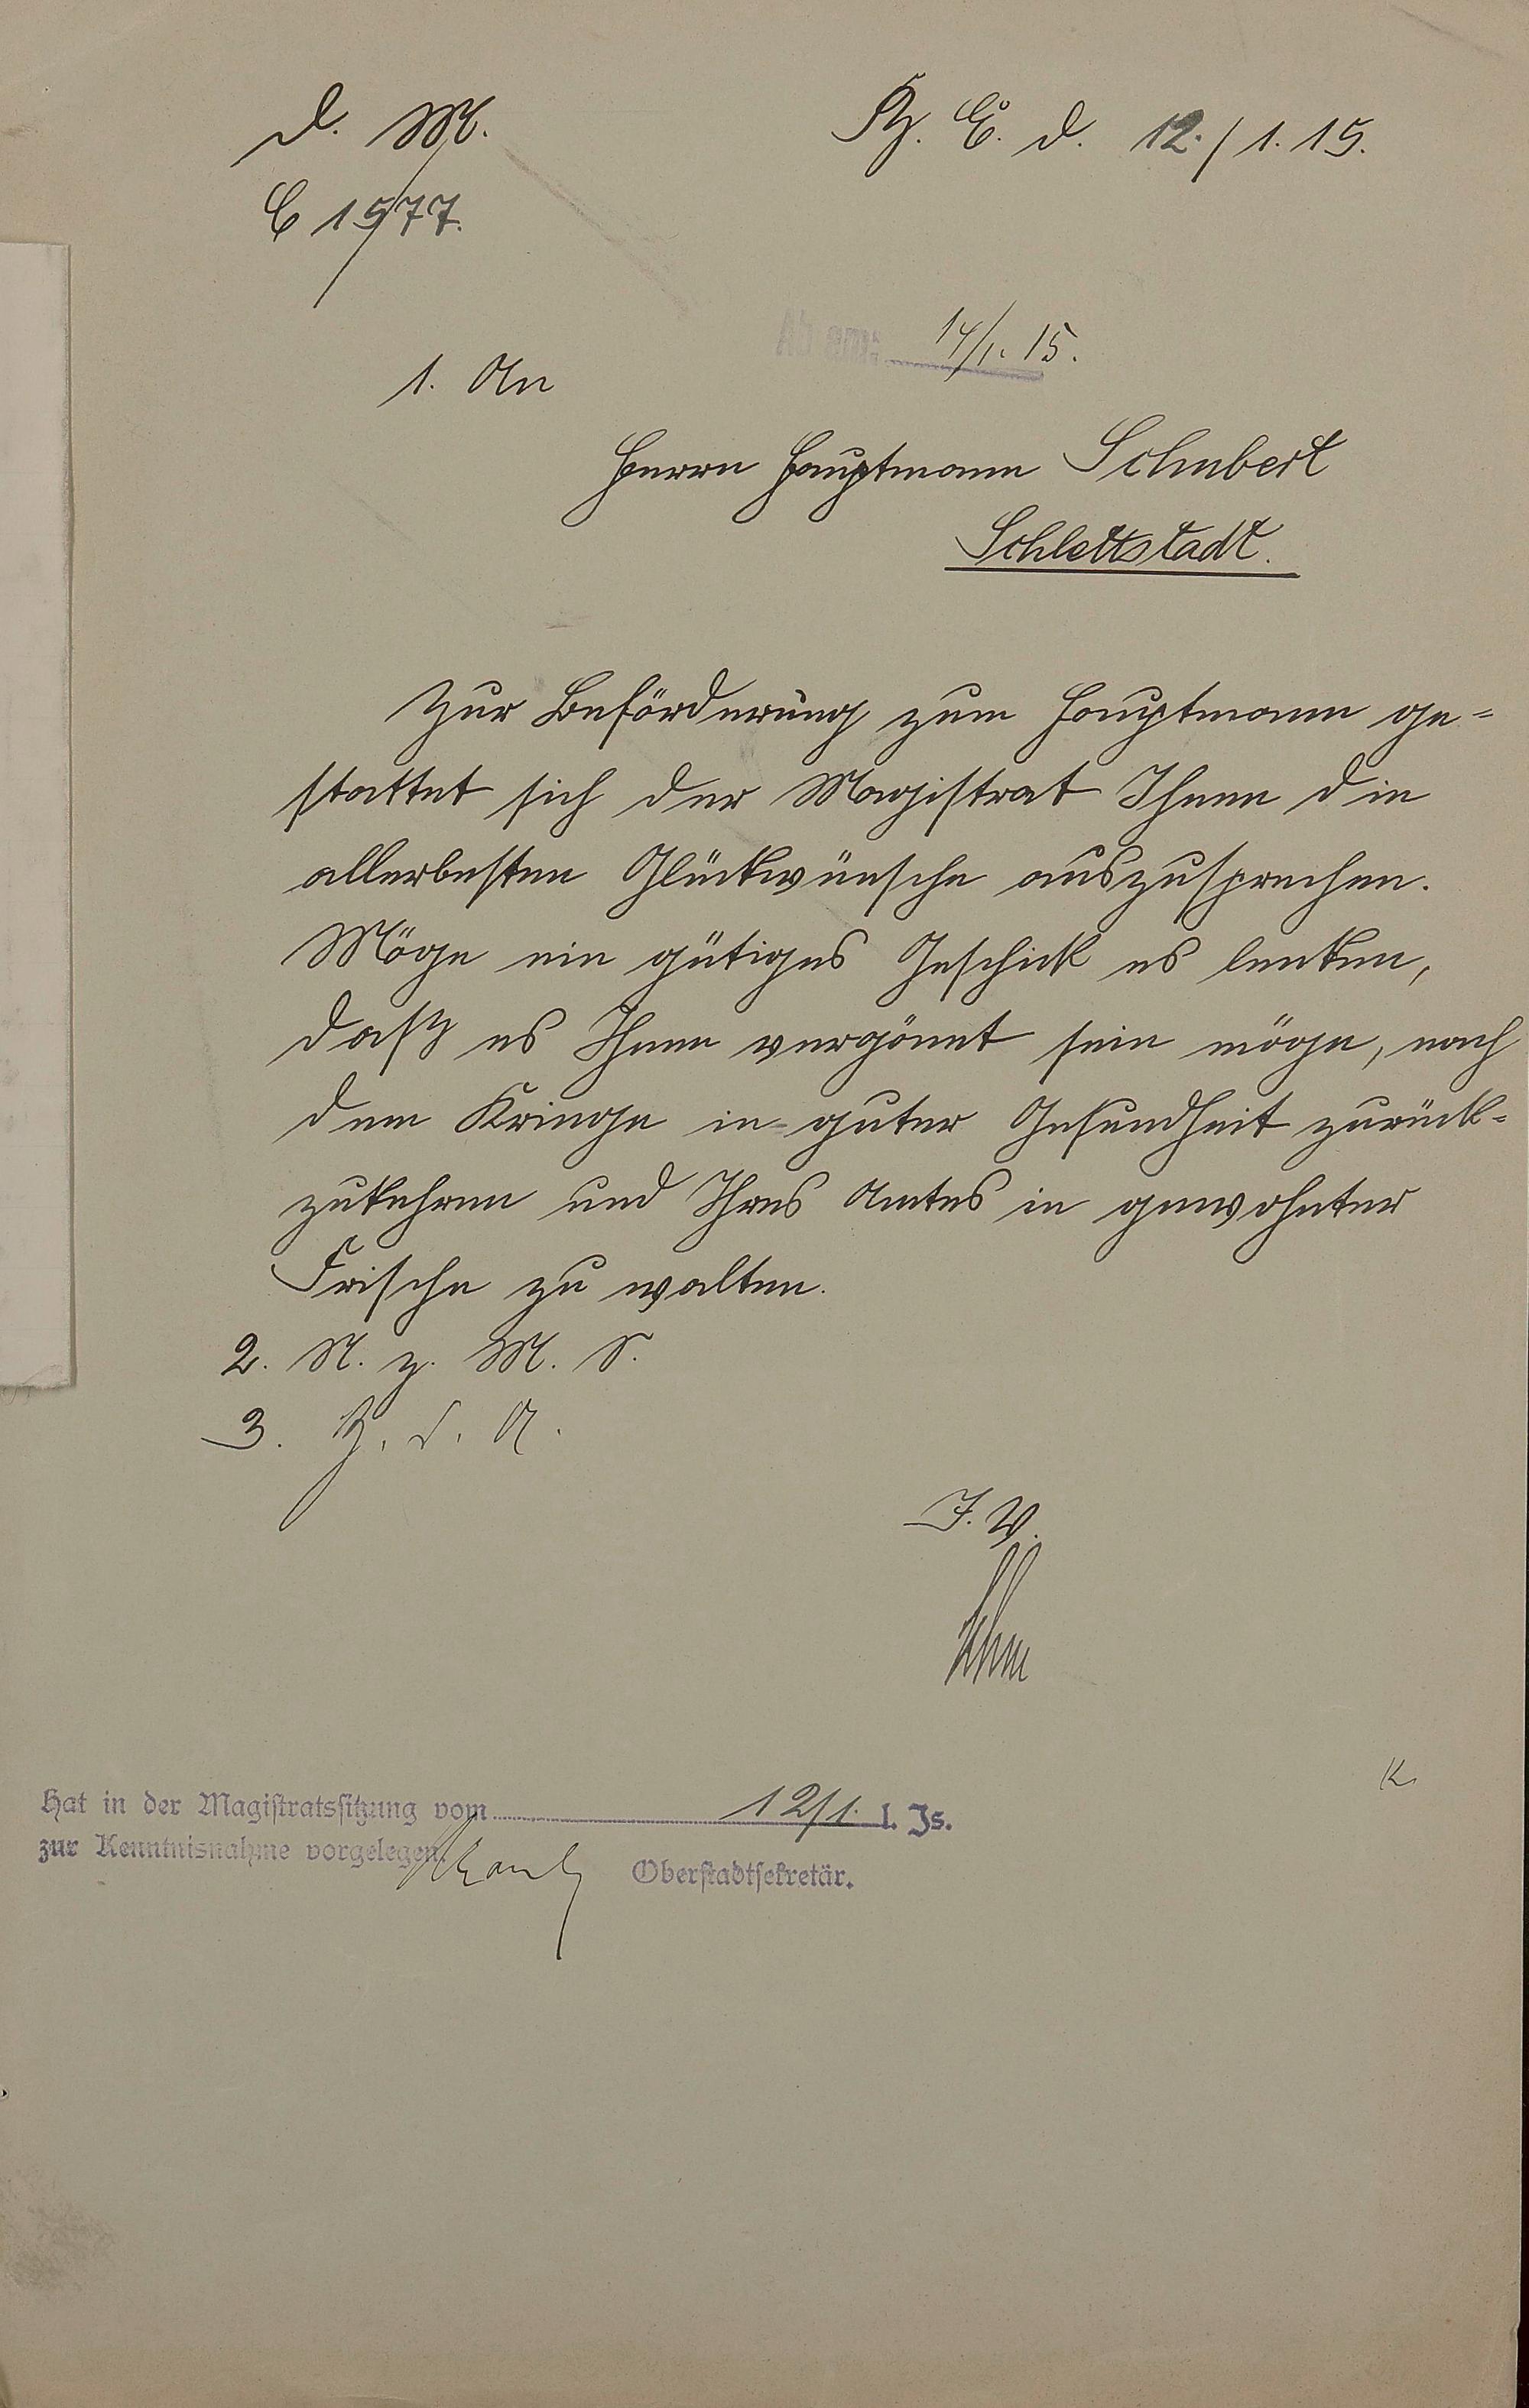 D. M.
Kg. E. d. 12./1. 15.
C 1577.
Ab am: 14/1. 15.
1. An
Herrn Hauptmann Schubert
Schlettstadt.
Zur Beförderung zum Hauptmann ge=
stattet sich der Magistrat Ihnen die
allerbesten Glückwünsche auszusprechen.
Möge ein gütiges Geschick es lenken,
daß es Ihnen vergönnt sein möge, nach
dem Kriege in guter Gesundheit zurück=
zukehren und Ihres Amtes in gewohnter
Frische zu walten.
2. N. z. M. S.
3. Z. d. A.
I. V.
K
Hat in der Magistratssitzung vom 12/1. l. Js.
zur Kenntnisnahme vorgelegen.
Oberstadtsekretär.